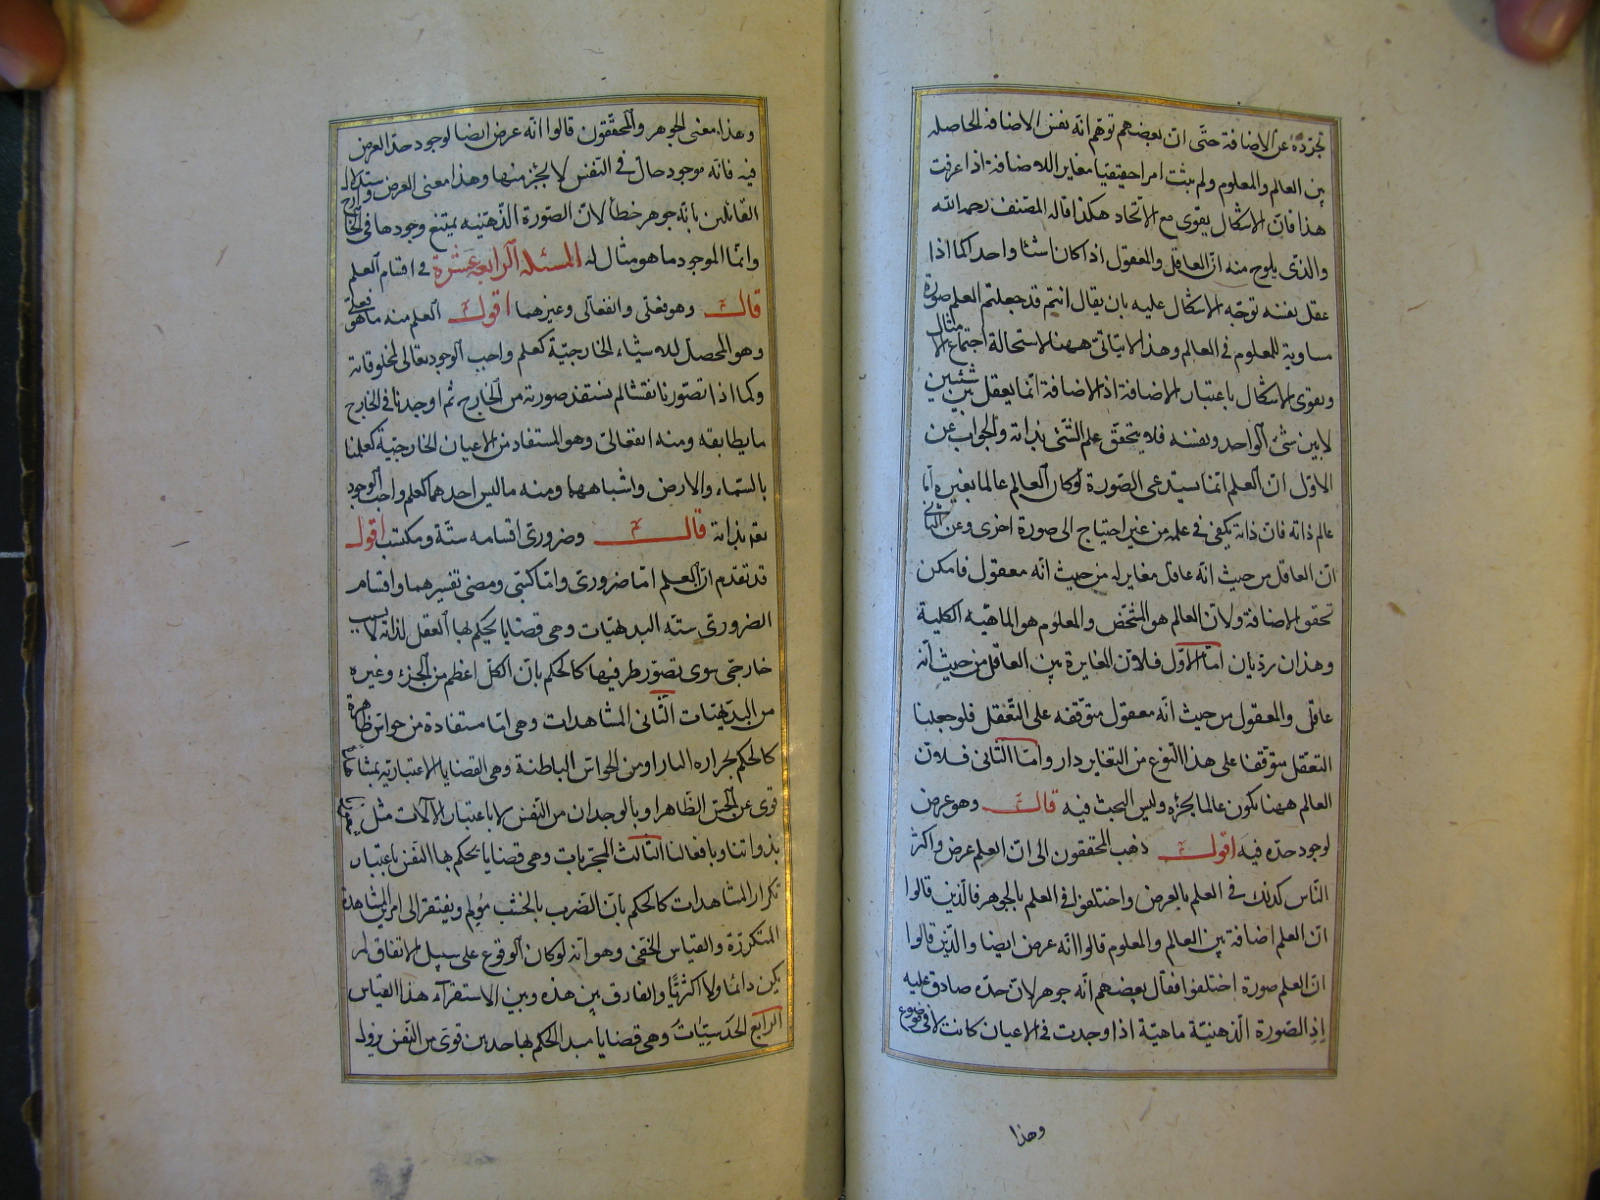 تجرده عن الاضافة حتى ان بعضهم توهم انه نفس الاضافة الحاصله
بين العالم والمعلوم ولم يثبت امرا حقيقيا مغايرا للاضافة اذا عرفت
هذا فان الاشكال يقوى مع الاتحاد هكذا قاله المصنف رحمه الله
والذى يلوح منه ان العاقل والمعقول اذا كان شئا واحدا كما اذا
عقل نفسه توجه الاشكال عليه بان يقال انتم قد جعلتم العلم صورة
مساوية للمعلوم فى العالم وهذا لا يتاتى ههنا لاستحالة اجتماع الامثال
ويقوى الاشكال باعتبار الاضافة اذ الاضافة انما يعقل بين شئين
لا بين شئ الواحد ونفسه فلا يتحقق علم الشئ بذاته والجواب عن
الاول ان العلم انما يستدعى الصورة لو كان العالم عالما بغيره اما
عالم ذاته فان ذاته يكفى فى علمه من غير احتياج الى صورة اخرى وعن الثانى
ان العاقل من حيث انه عاقل مغاير له من حيث انه معقول فامكن
تحقق الاضافة ولان العالم هو الشخص والمعلوم هو الماهية الكلية
وهذان رديان اما الاول فلان المغايرة بين العاقل من حيث انه
عاقل والمعقول من حيث انه معقول متوقفه على التعقل فلو جعلنا
التعقل متوقفا على هذا النوع من التغاير دار واما الثانى فلان
العالم ههنا يكون عالما بجزئه وليس البحث فيه قال وهو عرض
لوجود حده فيه اقول ذهب المحققون الى ان العلم عرض واكثر
الناس كذلك فى العلم بالعرض واختلفوا فى العلم بالجوهر فالذين قالوا
ان العلم اضافة بين العالم والمعلوم قالوا انه عرض ايضا والذين قالوا
ان العلم صورة اختلفوا فقال بعضهم انه جوهر لان حده صادق عليه
اذ الصورة الذهنية ماهية اذا وجدت فى الاعيان كانت لا فى موضوع
وهذا
وهذا معنى الجوهر والمحققون قالوا انه عرض ايضا لوجود حد العرض
فيه فانه موجود حال فى النفس لا لجزء منها وهذا معنى العرض واستدلال
القائلين بانه جوهر خطأ لان الصورة الذهنيه يمتنع وجودها فى الخارج
وانما الموجود ما هو مثال له المسئله الرابعه عشرة فى اقسام العلم
قال وهو فعلى وانفعالى وغيرهما اقول العلم منه ما هو فعلى
وهو المحصل للاشياء الخارجيّة كعلم واجب الوجود تعالى لمخلوقاته
وكما اذا تصورنا نقشا لم نستفد صورته من الخارج ثم اوجدنا فى الخارج
ما يطابقه ومنه انفعالى وهو المستفاد من الاعيان الخارجيّة كعلمنا
بالسماء والارض واشباههما ومنه ما ليس احدهما كعلم واجب الوجود
تعه بذاته قال وضرورى اقسامه ستة ومكتسب اقول
قد تقدم ان العلم اما ضرورى واما كسبى ومضى تفسيرهما واقسام
الضرورى سته البديهيات وهى قضايا يحكم بها العقل لذاته لا بسبب
خارجى سوى تصور طرفيها كالحكم بان الكل اعظم من الجزء وغيره
من البديهيات الثانى المشاهدات وهى اما مستفادة من حواس ظاهرة
كالحكم بحراره النار او من الحواس الباطنة وهى القضايا الاعتباريه بمشاهدة
قوى غير الحس الظاهر او بالوجدان من النفس لا باعتبار الالات مثل شعورنا
بذواتنا وبافعالنا الثالث المجربات وهى قضايا يحكم بها النفس باعتبار
تكرار المشاهدات كالحكم بان الضرب بالخشب مؤلم ويفتقر الى امرين المشاهدة
المتكررة والقياس الخفى وهو انه لو كان الوقوع على سبيل الاتفاق لم
يكن دائما ولا اكثريًا والفارق بين هذه وبين الاستقراء هذا القياس
الرابع الحدسيات وهى قضايا مبدا الحكم بها حدس قوى من النفس يزول